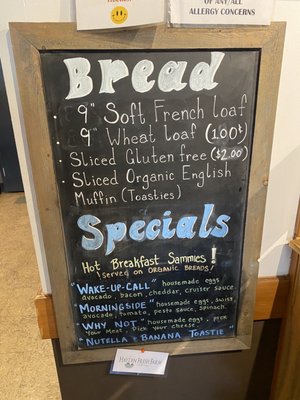 OF ANY/ALL
ALLERGY CONCERNS
Bread
9" Soft French loaf
9" Wheat loaf (1.00↑)
Sliced Gluten free ($2.00↑)
Sliced Organic English
Muffin (Toasties)
Specials
Hot Breakfast Sammies!
(served on ORGANIC BREADS!)
"WAKE-UP-CALL" housemade eggs
avocado, bacon, cheddar, cruiser sauce
"MORNINGSIDE" housemade eggs, swiss
avocado, tomato, pesto sauce, spinach
"WHY NOT" housemade eggs, pick
your meat, pick your cheese
"NUTELLA & BANANA TOASTIE"